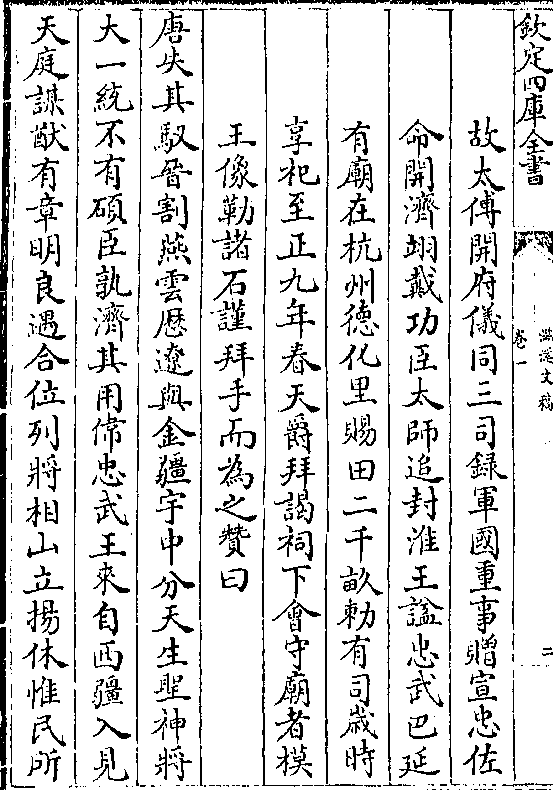 欽定四庫全書
滋溪文稿
卷一
二
故太傅開府儀同三司録軍國重事贈宣忠佐
命開濟翊戴功臣太師追封淮王諡忠武巴延
有廟在杭州德化里賜田二千畝勅有司歲時
享祀至正九年春天爵拜謁祠下會守廟者模
王像勒諸石謹拜手而為之贊曰
唐失其馭晉割燕雲歴遼與金疆宇中分天生聖神將
大一統不有碩臣孰濟其用倬忠武王來自西疆入見
天庭謀猷有章明良遇合位列將相山立揚休惟民所